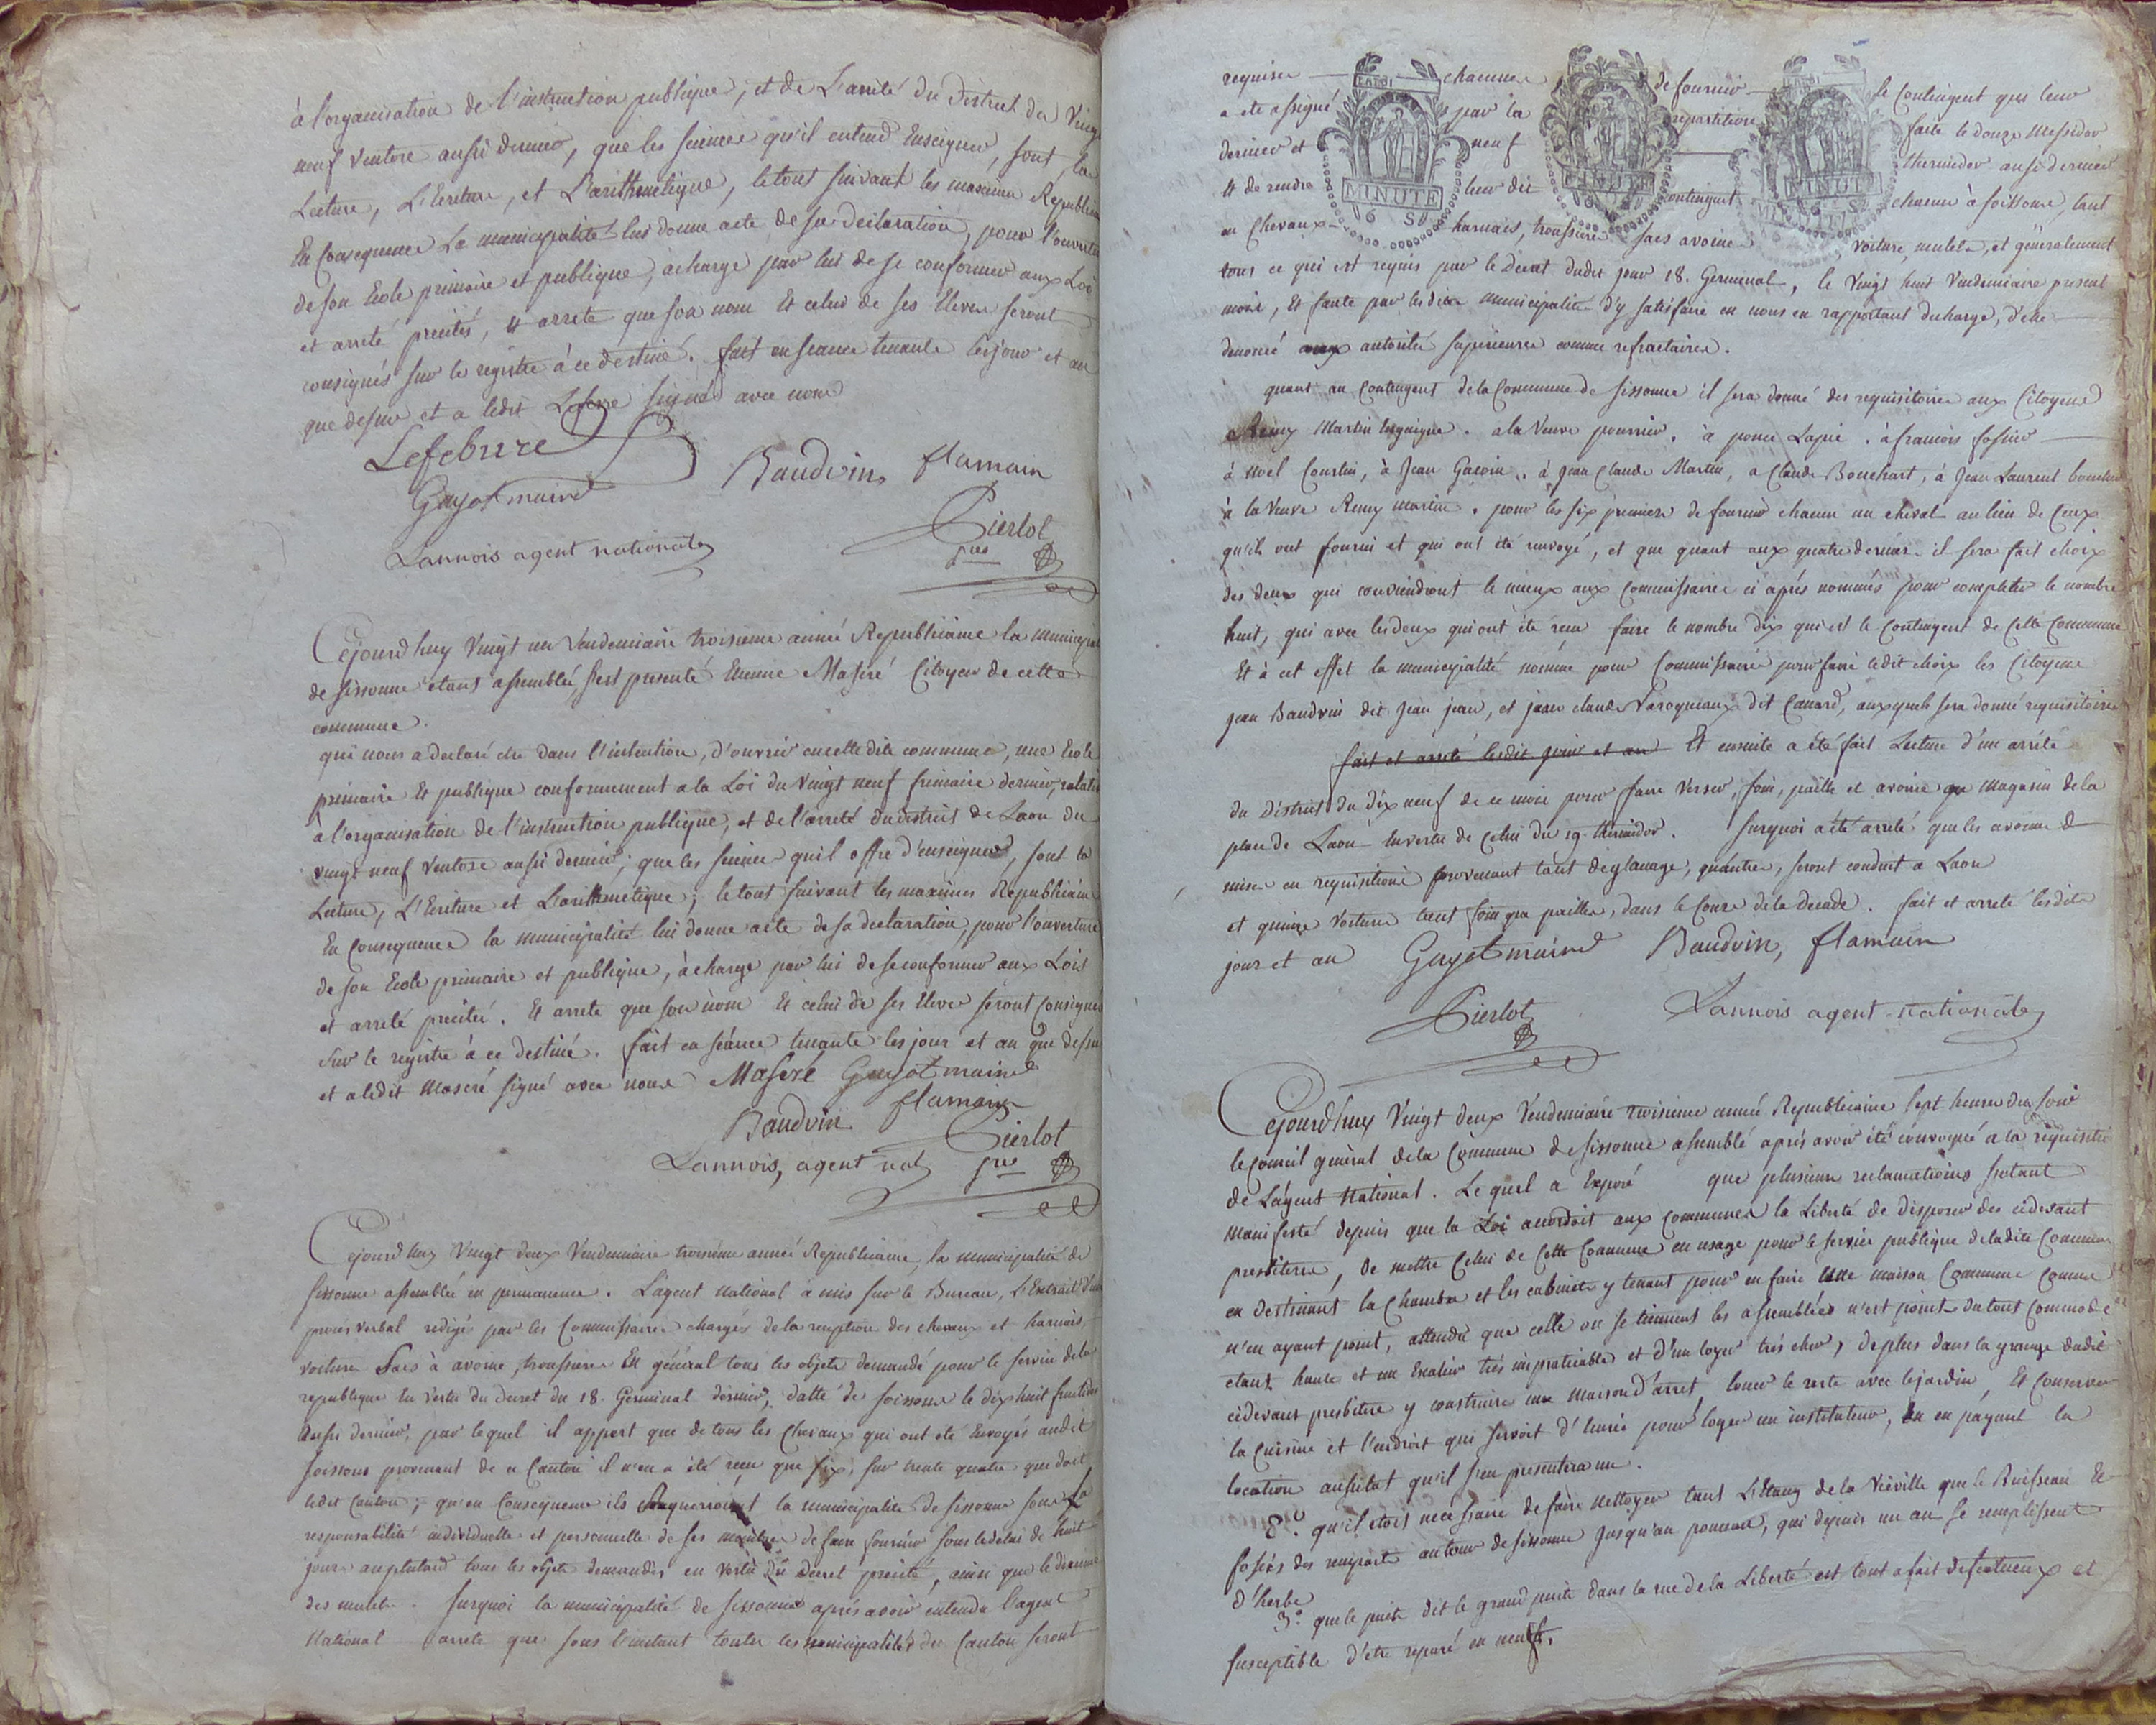 à l'organisation de l'instruction publique, et de L'arrêté du District du Vingt
neuf ventose aussi dernier, que les sciences qu'il entend Enseigner, sont, la
Lecture, L'Ecriture, et L'arithmetique, le tout suivant les maximes Republicai
En Consequence La municipalité lui donne acte de sa declaration, pour l'ouvertu
de son Ecole primaire et publique, acharge par lui de se conformer aux Loi
et arreté précités, et arrete que son nom Et celui de ses Eleves seront
consignés sur le registre à ce destiné. fait en seance tenante lesjour et an
que dessus et a ledit Lefevre signé avec nous
Lefebvre
Baudvin flamain
Guyot maire
Lannois agent nationale
Pierlot
gres
Cejourd'huy Vingt un Vendemiaire troisieme année Republicaine la municipal
de sissonne etant assemblée, s'est presenté Etienne Maseré Citoyen de cette
commune.
qui nous a declaré etre dans l'intention, d'ouvrir en cettedite commune, une Ecole
primaire Et publique conformement a la Loi du Vingt neuf frimaire dernier, relati
à l'organisation de l'instruction publique, et de l'arreté du district de Laon du
vingt neuf ventose aussi dernier; que les sciences qu'il offre d'enseigner, sont la
Lecture, L'Ecriture et L'arithmetique; le tout suivant les maximes Republicaine
En Consequence la municipalité lui donne acte de sa declaration, pour l'ouverture
de son Ecole primaire et publique, à charge par lui de se conformer aux Lois
et arreté précité. Et arrete que son nom Et celui de ses Eleves seront Consignés
sur le registre à ce destiné. fait en séance tenante les jour et an que dessus
et a ledit Maseré signé avec nous Maseré Guyot maire
Baudvin flamain
Lannois, agent nat Pierlot
gres
Cejourd'huy Vingt deux Vendemiaire troisième année Republicaine, la municipalité de
sissonne assemblée en permanence. L'agent national à mis sur le Bureau, L'Extrait d'un
procès verbal redigé par les Commissaires chargés de la reception des chevaux et harnois,
voitures Sacs à avoine, troussures En général tous les objets demandé pour le service de la
republique En vertu du Decret du 18. Germinal dernier, datté de soissons le dix huit fructidor
aussi dernier, par lequel il appert que de tous les Chevaux qui ont été Envoyés audit
soissons provenant de ce Canton il n'en a été reçu que six, sur trente quatre que doit
ledit Canton; qu'en Consequence ils requerroient la municipalité de sissonne sous sa
responsabilité individuelle et personnelle de ses membres de faire fournir sous le delai de huit
jours auplutard tous les objets demandés en vertu du decret précité, ainsi que le dixieme
des mulets. Surquoi la municipalité de sissonne après avoir entendu l'agent
National arrete que sous l'instant toutes les municipalités du Canton seront
requises chacunes de fournir le Contingent qui leur
a ete assigné par la repartition faite le douze Messidor
dernier et neuf thermidor aussi dernier
Et de rendre leur dit contingent chacun à soissons, tant
en Chevaux harnais, troussures sacs avoine voiture, mulets, et généralement
tous ce qui est requis par le Decret dudit jour 18. Germinal, le Vingt huit Vendemiaire present
mois, Et faute par lesdites municipalités d'y satisfaire en nous en rapportant decharge, d'etre
denoncé aux autorités supérieures comme refractaires.
quant au Contingent de la Commune de sissonne il sera donné des requisitoires aux Citoyens
Remy Martin . a la Veuve pourrier, à ponce Lapie . à francois
à Noel Courtin, à Jean Gacoin. à Jean Claude Martin, a Claude Bouchart, à Jean Laurent
à la Veuve Remy Martin. pour les six premiers de fournir chacun un cheval au lieu de Ceux
qu'ils ont fourni et qui ont été renvoyé, et que quant aux quatre derniers il sera fait choix
des deux qui conviendront le mieux aux Commissaires ci après nommés pour completter le nombre
huit, qui avec les deux qui ont été reçu faire le nombre dix qui est le Contingent de Cette Commune
Et à cet effet la municipalité nomme pour Commissaire pour faire ledit choix les Citoyens
Jean Baudvin dit Jean jean, et jean claude Varoqueaux dit Canard, auxquels sera donné requisitoire
fait et arreté lesdit jour et an Et ensuite a été fait Lecture d'un arrêté
du District du dix neuf de ce mois pour faire Verser, foin, paille et avoine au Magasin de la
place de Laon Envertu de Celui du 19. thermidor. surquoi a été arreté que les avoines
mise en requisition provenant tant de glanage, qu'autre, seront conduit a Laon
et quinze voitures tant foin que pailles, dans le Cours de la decade. fait et arreté lesdits
jour et an Guyot maire Baudvin, flamain
Pierlot Lannois agent nationale
Cejourd'huy Vingt deux Vendemiaire troisieme année Republicaine sept heures du soir
le Conseil général de la Commune de sissonne assemblé après avoir été convoqué a la requisitio
de L'agent National. Lequel a Exposé que plusieurs reclamations s'etant
Manifesté depuis que la Loi accordoit aux Communes la Liberté de disposer des cidevant
presbiteres, de mettre Celui de Cette Commune en usage pour le service publique de ladite Commune
en destinant la Chambre et les cabinets y tenant pour en faire Une maison Commune Comme
n'en ayant point, attendu que celle ou se tiennent les assemblées n'est point du tout commode
etant haute et un Escalier très impraticable et d'un loyer très cher, deplus dans la grange dudit
cidevant presbitere y construire une maison d'arret, louer le reste avec le jardin, Et Conserver
la Cuisine et l'endroit qui servoit d'Ecurie pour loger un instituteur, En en payant la
location aussitot qu'il s'en presentera un.
2.° qu'il etoit nécéssaire de faire Nettoyer tant L'Etang de la Vieville que le Ruisseau Et
fossés des remparts autour de sissonne jusqu'au ponceau, qui depuis un an se remplissent
d'herbe
3.° que le puits dit le grand puits dans la rue de la Liberté est tout a fait defectueux et
susceptible d'etre reparé en neuf.
LA LOI
MINUTE
6 S
MINUTE
MINUTE
6 S